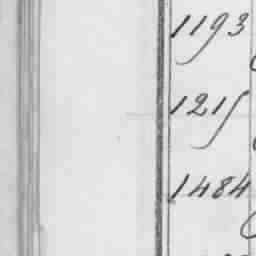 1193
1215
1484